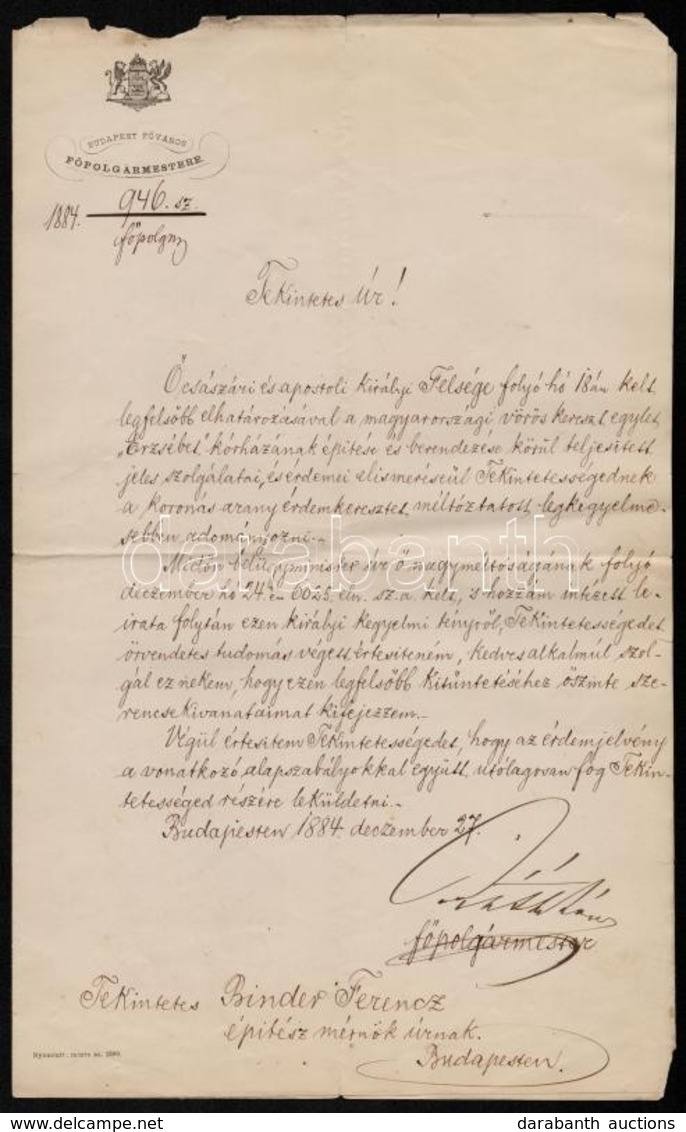 BUDAPEST FŐVÁROS
FŐPOLGÁRMESTERE.
946. sz.
1884.
főpolgm
Tekintetes Úr!
Ő császári és apostoli királyi Felsége folyó hó 18án kelt
legfelsőbb elhatározásával a magyarországi vörös kereszt egylet
„Erzsébet” kórházának épitése és berendezése körül teljesitett
jeles szolgálatai, és érdemei elismeréseül Tekintetességednek
a koronás arany érdemkeresztet méltóztatott legkegyelme-
sebben adományozni.-
Midőn belügyminister úr ő nagyméltóságának folyó
deczember hó 24én 6025 eln. sz. a. kelt, s hozzám intézett le-
irata folytán ezen királyi kegyelmi tényről, Tekintetességedet
örvendetes tudomás végett értesiteném, kedves alkalmúl szol-
gál ez nekem, hogy ezen legfelsőbb kitüntetéséhez őszinte sze-
rencsekivanataimat kifejezzem.-
Végül értesitem Tekintetességedet, hogy az érdemjelvény
a vonatkozó alapszabályokkal együtt utólagosan fog Tekin-
tetességed részére leküldetni.-
Budapesten 1884 deczember 27.
Ráth Károly
főpolgármester
Tekintetes Binder Ferencz
épitész mérnök úrnak.
Budapesten.
darabanth
darabanth auctions